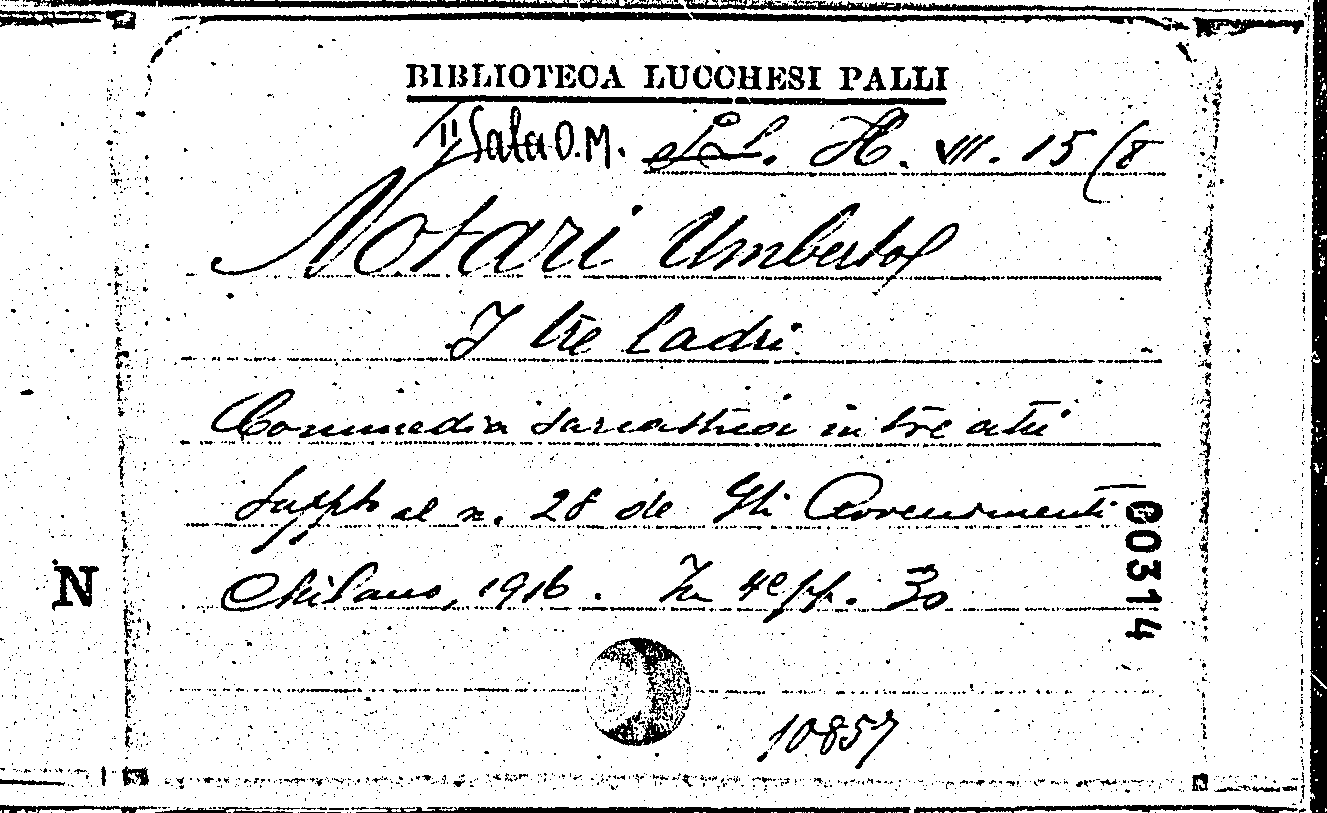 BIBLIOTECA LUCCHESI PALLI
II Sala O.M. L.L. H. VIII. 15 (8
Notari Umberto
I tre ladri
Commedia sarcastica in tre atti
Suppto al n. 28 de Gli Avvenimenti
Milano, 1916. In 4º pp. 30
N
00314
10857